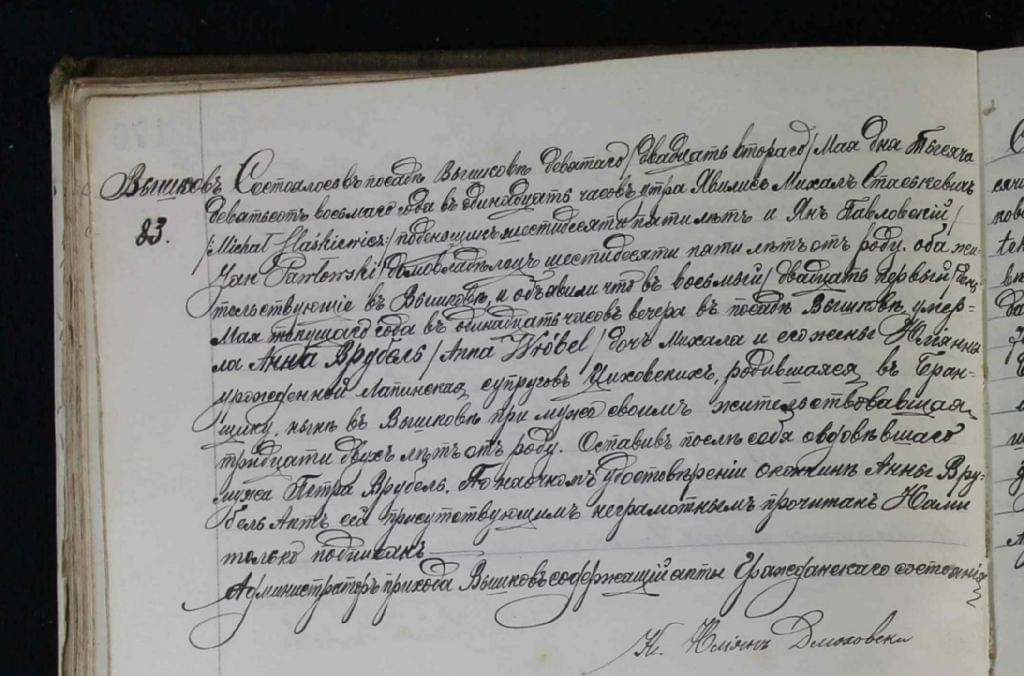 Вышковъ Состоялось въ посадѣ Вышковѣ девятаго /двадцать втораго/ Мая дня Тысяча
83.
девятьсот восьмаго года въ одинадцать часовъ утра Явились Михалъ Сташкевичъ
/Michał Staśkiewicz/ поденщикъ шестидесяти пяти лѣтъ и Янъ Павловскій/
Jan Pawłowski/ домовладѣлецъ шестидесяти пяти лѣтъ отъ роду, оба жи-
тельствующіе въ Вышковѣ, и объявили что въ восьмый/двадцать первый/день
Мая текущаго года въ одинадцать часовъ вечера въ посадѣ Вышковѣ умер-
ла Анна Врубель /Anna Wróbel/ дочь Михала и его жены Юліянны
урожденной Лапинская супруговъ Циховскихъ, родившаяся въ Бран-
щику, нынѣ въ Вышковѣ при мужѣ своимъ жительствовавшая
тридцати двухъ лѣтъ отъ роду. Оставивъ послѣ себя овдовѣвшаго
мужа Петра Врубель. По наочномъ удостовѣреніи о кончинѣ Анны Вру-
бель Актъ сей присутствующимъ неграмотнымъ прочитанъ Нами
только подписанъ
Администраторъ прихода Вышковъ содержащій акты Гражданскаго состоянія
Кс. Юліянъ